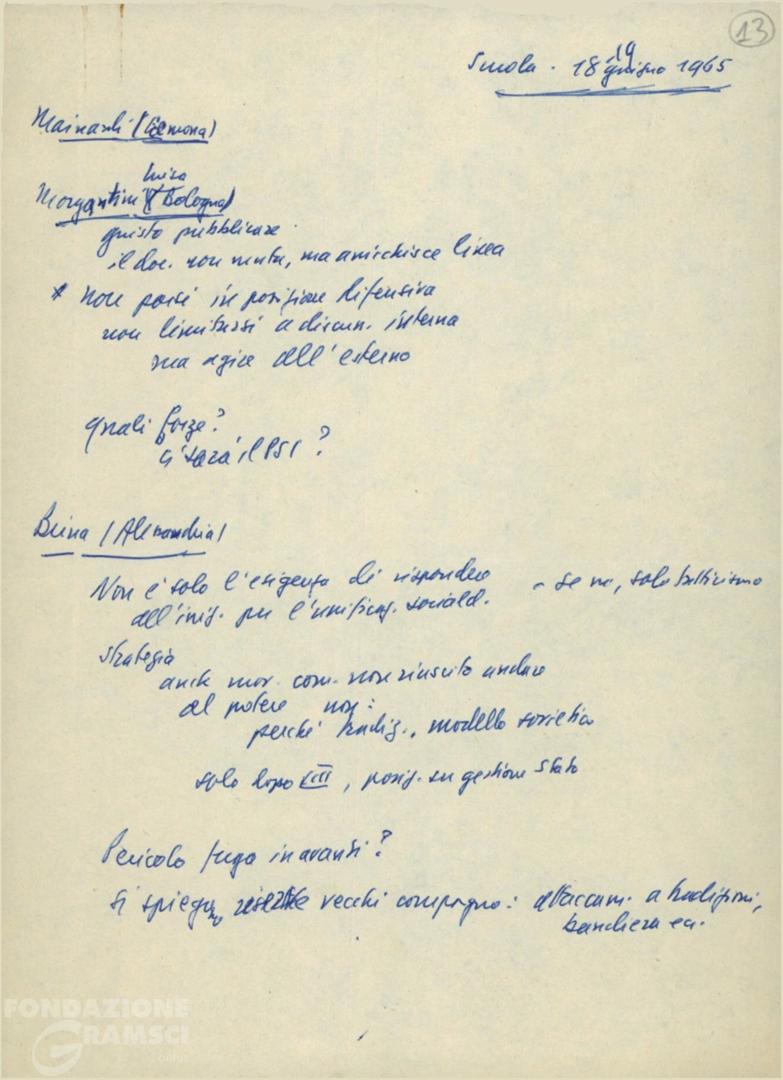 13
Scuola - 18 19 giugno 1965
Mainardi (Cremona)
Luisa
Morgantini (Bologna)
giusto pubblicare
il doc. non muta, ma arricchisce linea
* non porsi in posizione difensiva
non limitarsi a discuss. interna
ma agire all'esterno
quali forze?
ci sarà il PSI?
Brina (Alessandria)
Non è solo l'esigenza di rispondere - se no, solo tatticismo
all'iniz. per l'unificaz. sociald.
strategia
anche mov. com. non riuscito andare
al potere
perché tradiz., modello sovietico
solo dopo VIII, posiz. su gestione Stato
Pericolo fuga in avanti?
Si spiegano riserve vecchi compagni: attaccam. a tradizioni,
bandiera ecc.
FONDAZIONE
GRAMSCI
onlus